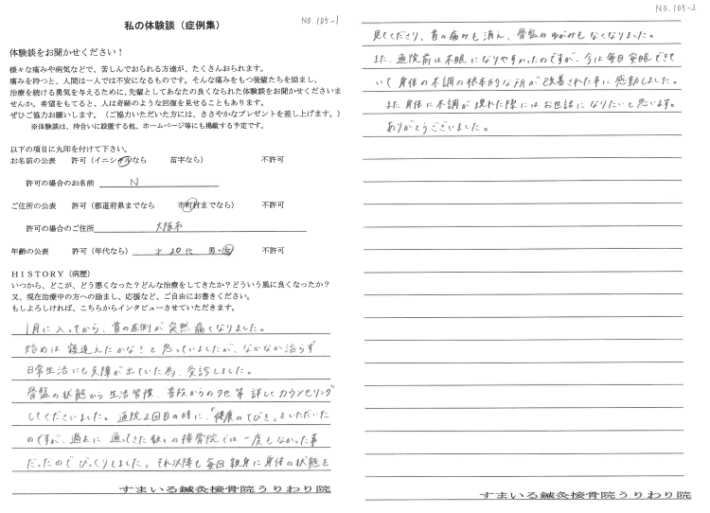 NO. 105-1
私の体験談（症例集）
体験談をお聞かせください！
様々な痛みや病気などで、苦しんでおられる方達が、たくさんおられます。
痛みを持つと、人間は一人では不安になるものです。そんな痛みをもつ後輩たちを励まし、
治療を続ける勇気を与えるために、先輩としてあなたの良くなられた体験談をお聞かせくださいま
せんか。希望をもてると、人は奇跡のような回復を見せることもあります。
ぜひご協力お願いします。（ご協力いただいた方には、ささやかなプレゼントを差し上げます。）
※体験談は、待合いに設置する他、ホームページ等にも掲載する予定です。
以下の項目に丸印を付けて下さい。
お名前の公表　許可（イニシャルなら　苗字なら）　不許可
許可の場合のお名前　N
ご住所の公表　許可（都道府県までなら　市町村までなら）　不許可
許可の場合のご住所　大阪市
年齢の公表　許可（年代なら）　才 20代　男・女　不許可
HISTORY（病歴）
いつから、どこが、どう悪くなった？どんな治療をしてきたか？どういう風に良くなったか？
又、現在治療中の方への励まし、応援など、ご自由にお書きください。
もしよろしければ、こちらからインタビューさせていただきます。
1月に入ってから、首の左側が突然痛くなりました。
始めは寝違えたかな！と思っていましたが、なかなか治らず
日常生活にも支障が出ていた為、受診しました。
骨盤の状態から生活習慣、普段からのクセ等 詳しくカウンセリング
してくださいました。通院2回目の時に、「健康のてびき」をいただいた
のですが、過去に通ってきた数々の接骨院では一度もなかった事
だったのでびっくりしました。それ以降も毎回親身に身体の状態を
すまいる鍼灸接骨院うりわり院
NO. 105-2
見てくださり、首の痛みも消え、骨盤のゆがみもなくなりました。
また、通院前は不眠になりやすかったのですが、今は毎日安眠できて
いて身体の不調の根本的な所が改善された事に感動しました。
また身体に不調が現れた際にはお世話になりたいと思います。
ありがとうございました。
すまいる鍼灸接骨院うりわり院